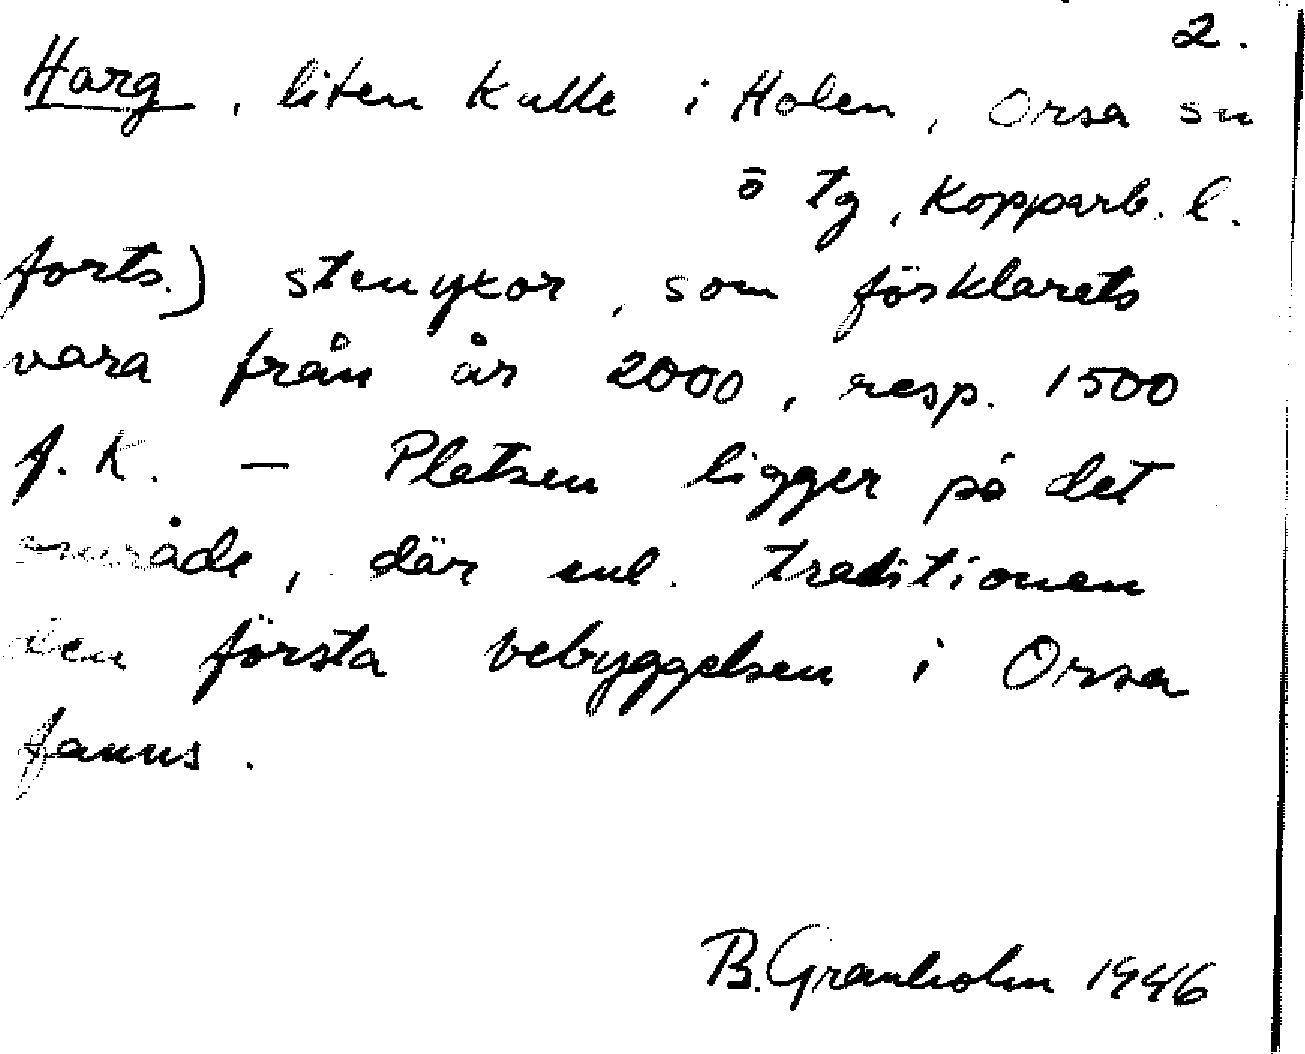 2.
Harg, liten kulle i Holen, Orsa sn
ö tg, Kopparb. l.
forts.) stenyxor, som förklarats
vara från år 2000, resp. 1500
f. K. — Platsen ligger på det
område, där enl. traditionen
den första bebyggelsen i Orsa
fanns.
B. Granholm 1946